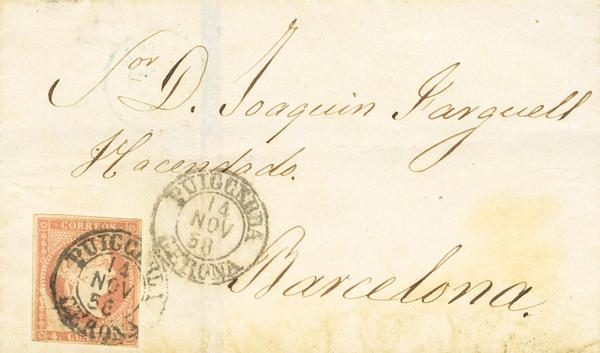 Sor D. Joaquin Farguell
Hacendado.
PUIGCERDA
14
NOV
58
GERONA
Barcelona.
CORREOS
PUIGCERDA
14
NOV
58
GERONA